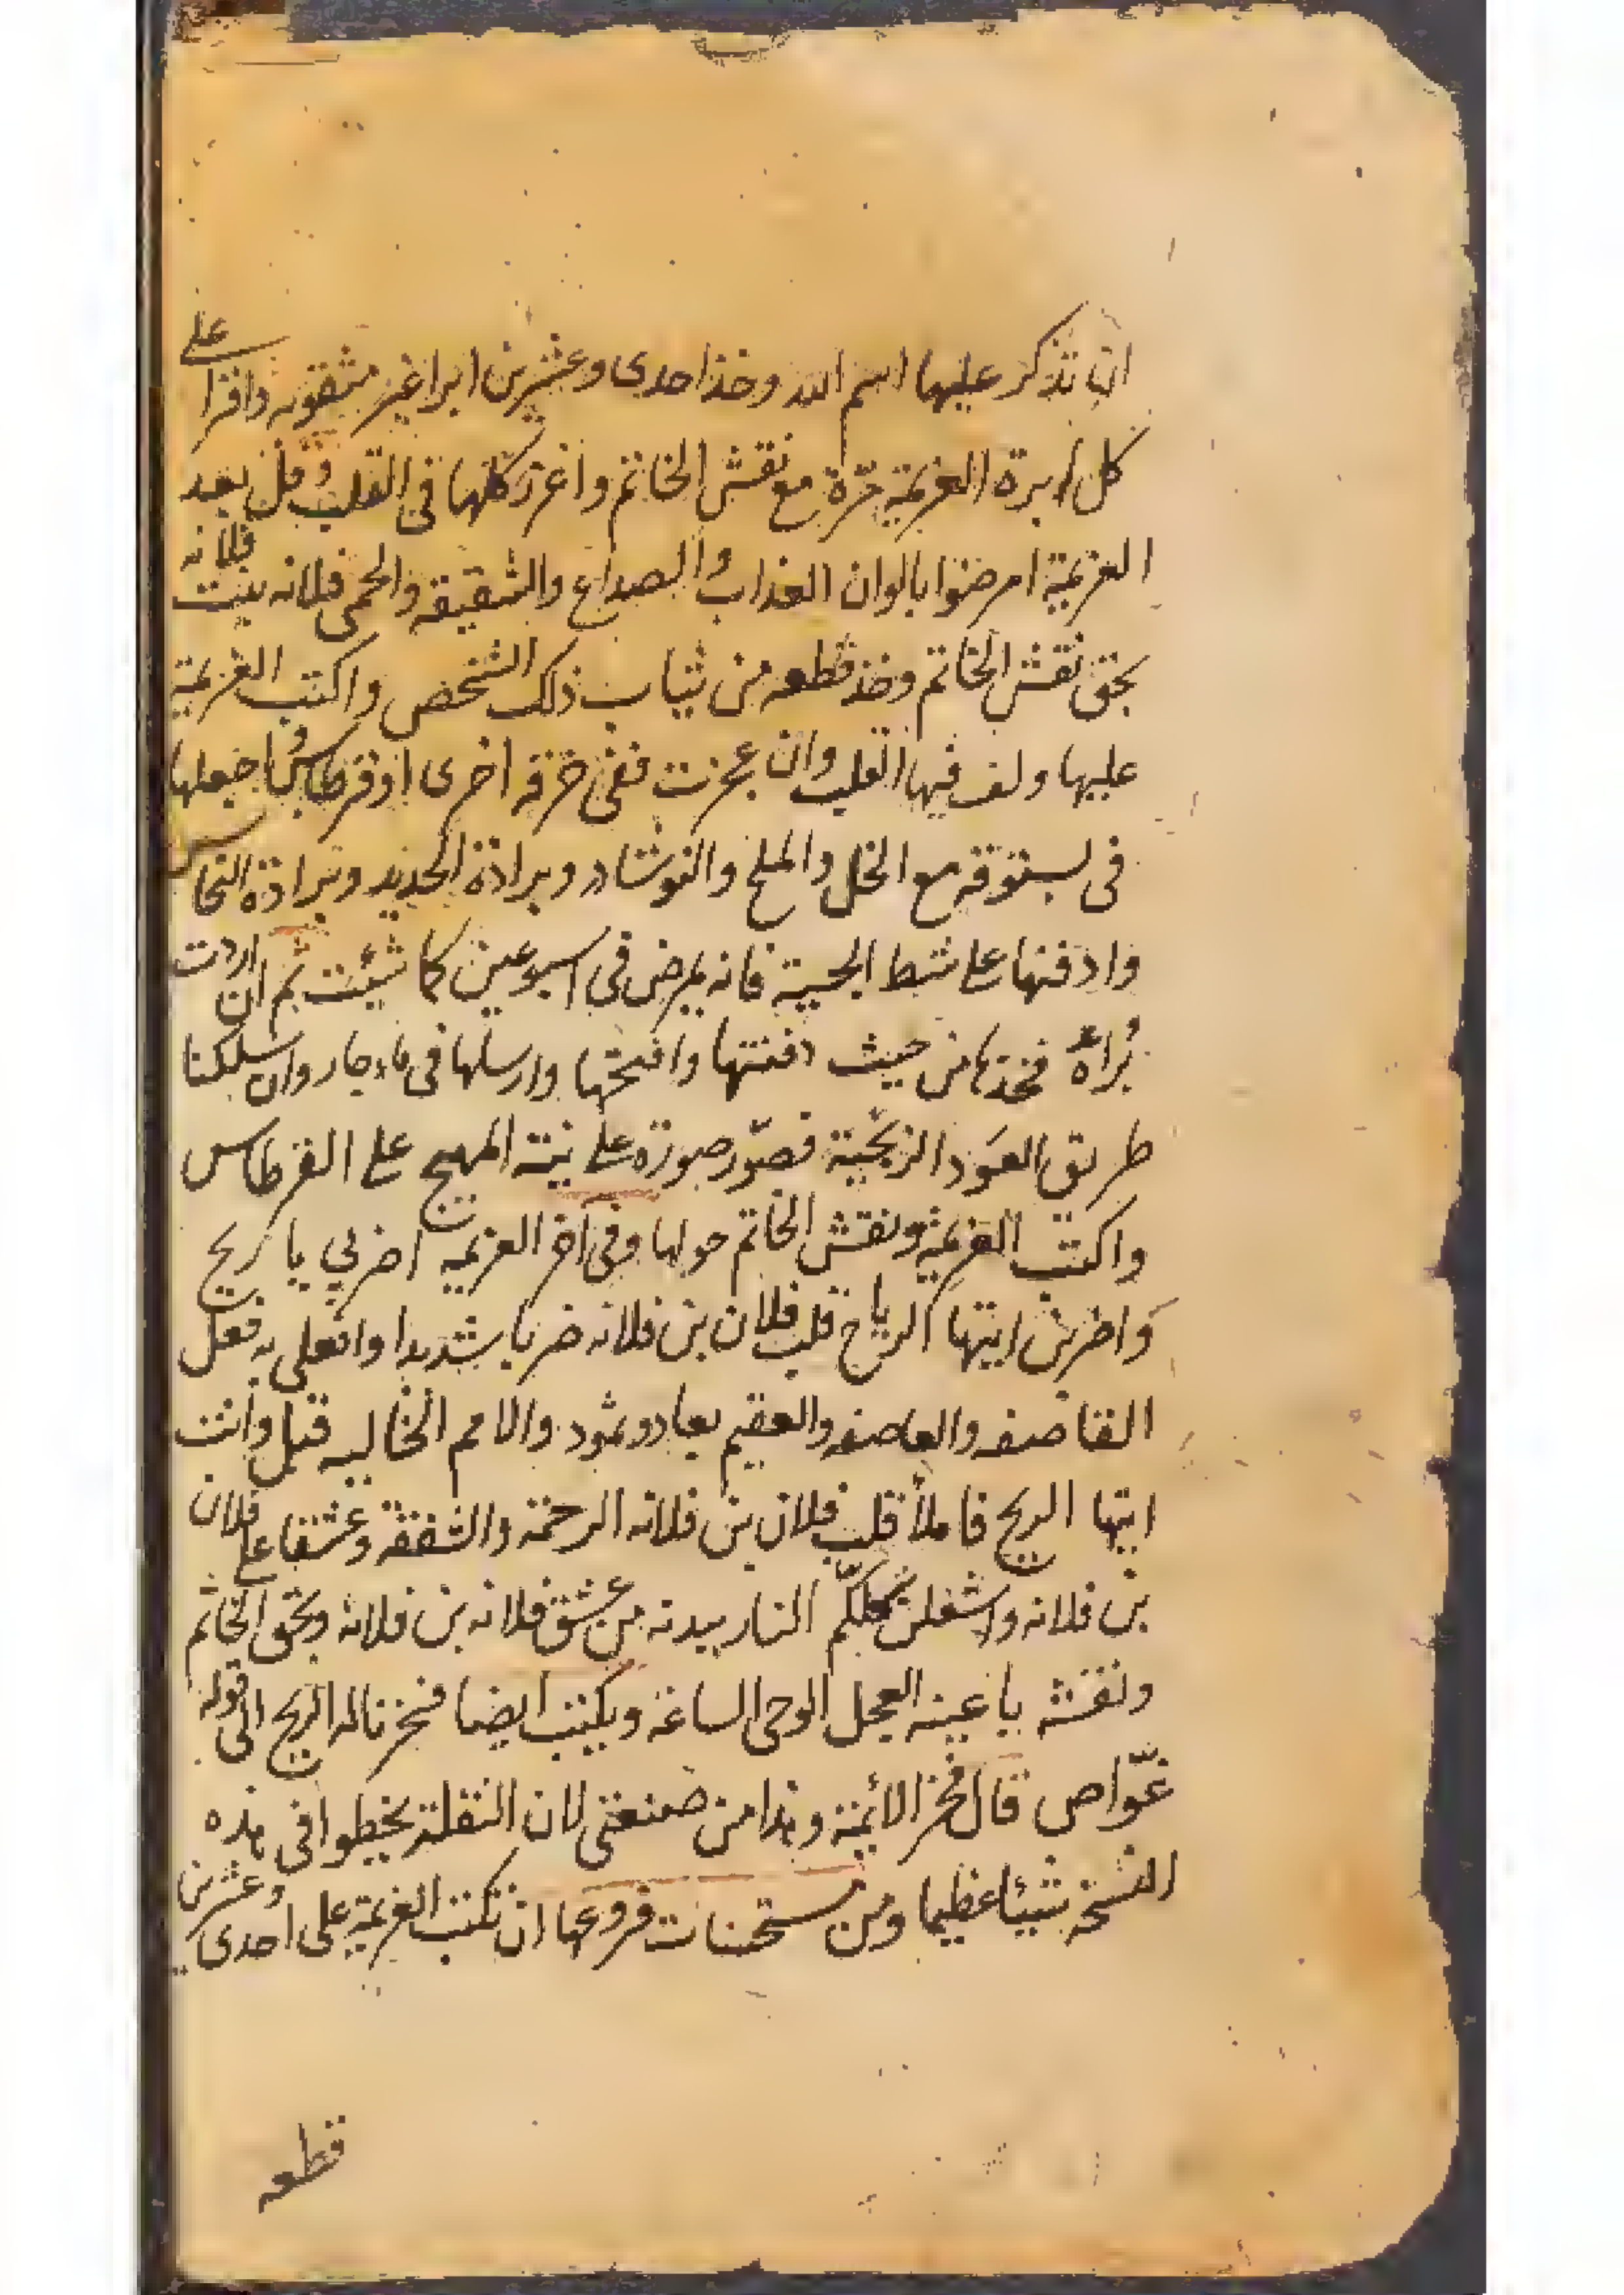 ان تذكر عليها اسم الله وخذ احدى وعشرين ابرا غير مثقوبه واقرا على
كل ابرة العزيمة مرّة مع نقش الخاتم واغرز كلها فى القلب وقل بعد
العزيمة امرضوا بالوان العذاب والصداع والشقيقه والحمى فلانه بنت فلانه
بحق نقش الخاتم وخذ قطعه من ثياب ذلك الشخص واكتب العزيمة
عليها ولف فيها القلب وان عجزت ففى خرقه اخرى او قرطاس واجعلها
فى بستوقه مع الخل والملح والنوشادر وبرادة الحديد وبرادة النحاس
وادفنها على شط الجسية فانه يمرض فى اسبوعين كما شيئت ثم ان اردت
بُراهُ فخذها من حيث دفنتها وافتحها وارسلها فى ماء جار وان سلكنا
طريق العود الزنجية فصوّر صورة على نية المهيج على القرطاس
واكتب العزيمة ونقش الخاتم حولها وفى آخر العزيمه اضربي يا ريح
واضربن ايتها الرياح قلب فلان بن فلانه ضربا شديدا وافعلى به فعل
القاصفه والعاصفه والعقيم بعاد وثمود والامم الخاليه قبل وانت
ايتها الريح فاملأ قلب فلان بن فلانه الرحمة والشفقة وعشقا على فلان
بن فلانه واشعلن النار ببدنه من عشق فلانه بن فلانه وبحق الخاتم
ونقشه باعينه العجل الوحى الساعة ويكتب ايضا فسخرنا له الريح الى قوله
غوّاص قال فخر الائمة وهذا من صنعتى لان النقلة يخبطوا فى هذه
النسخه شيئا عظيما ومن مستحسنات فروعها ان تكتب العزيمة على احدى وعشرين
قطعه